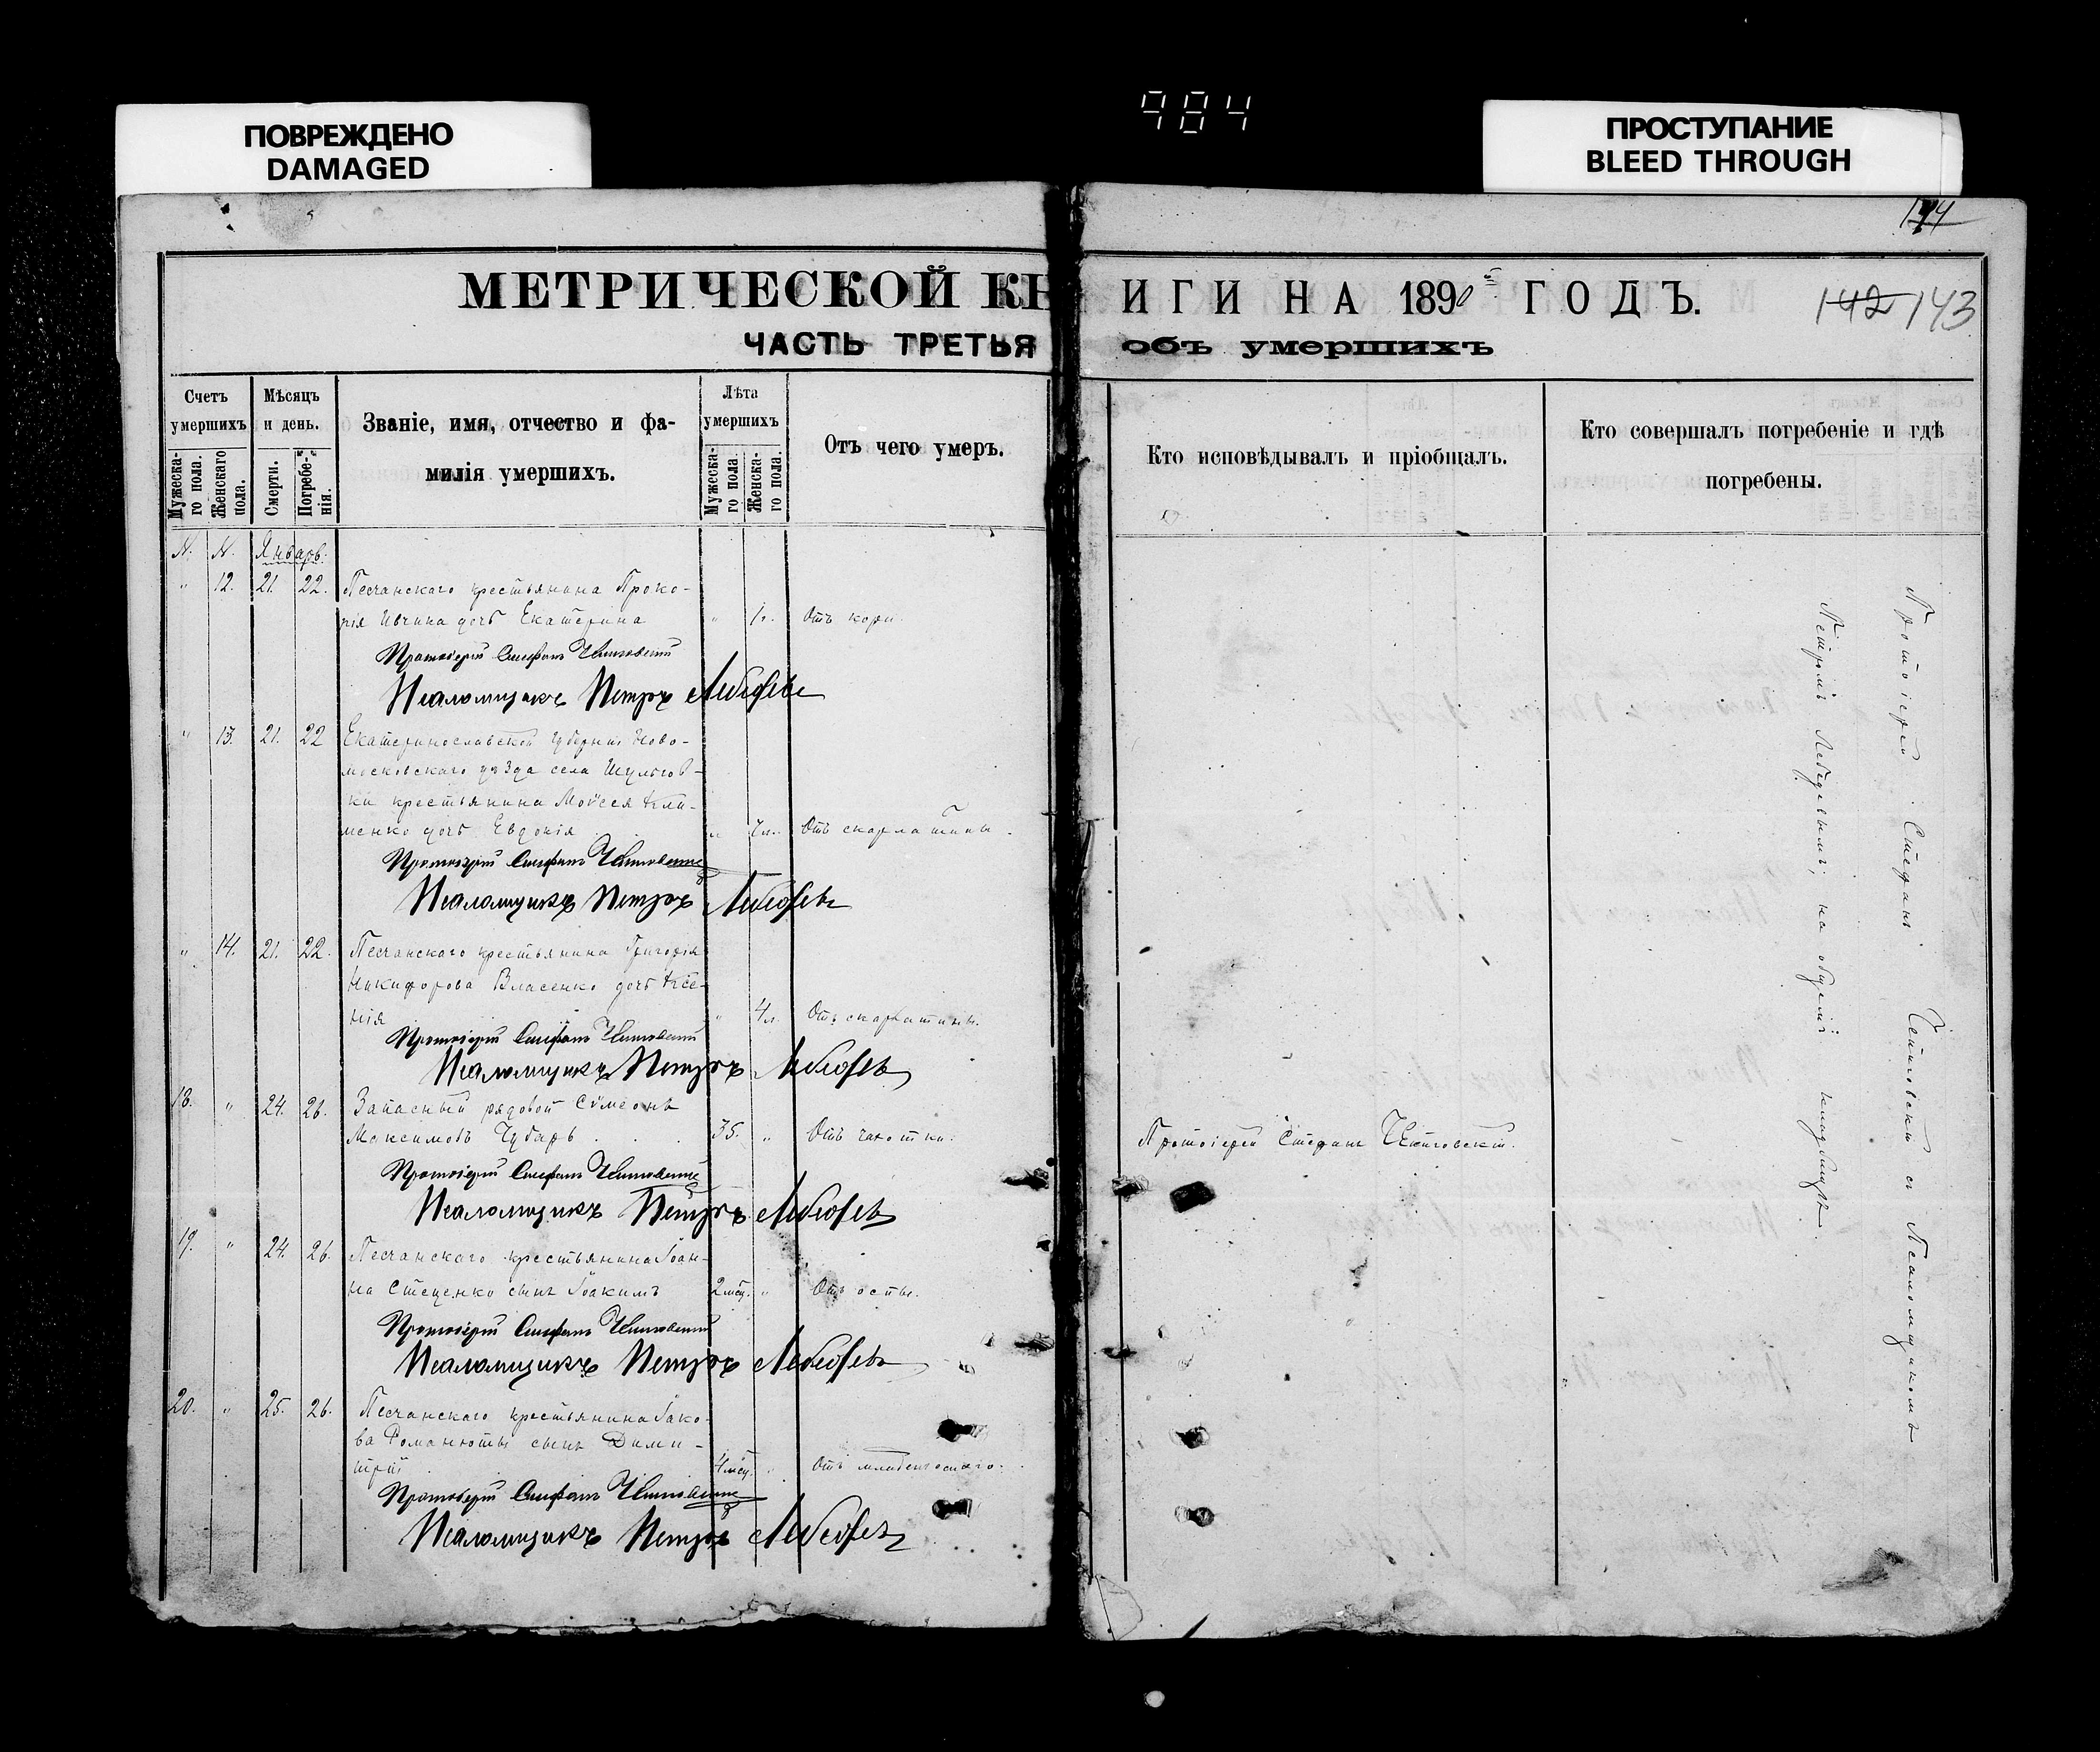 984
ПОВРЕЖДЕНО
DAMAGED
ПРОСТУПАНИЕ
BLEED THROUGH
МЕТРИЧЕСКОЙ КНИГИ НА 1890 ГОДЪ.
142 143
ЧАСТЬ ТРЕТЬЯ объ умершихъ
Счетъ умершихъ
Мужеска-го пола.
Женскаго пола.
Мѣсяцъ и день.
Смерти.
Погребе-нія.
Званіе, имя, отчество и фа-
милія умершихъ.
Лѣта умершихъ
Мужеска-го пола
Женска-го пола.
Отъ чего умеръ.
Кто исповѣдывалъ и пріобщалъ.
Кто совершалъ погребеніе и гдѣ
погребены.
N. N. Январ.
" 12. 21. 22. Песчанскаго крестьянина Проко-
пія Ивчина дочь Екатерина " 1г. Отъ кори.
Протоіерей Стефанъ
Псаломщикъ Петръ Лебедевъ
" 13. 21. 22 Екатеринославской губерніи Ново-
московскаго уѣзда села Шульгов-
ки крестьянина Моѵсея Кли-
менко дочь Евдокія " Отъ скарлатины.
Протоіерей Стефанъ
Псаломщикъ Петръ Лебедевъ
" 14. 21. 22. Песчанскаго крестьянина Григорія
Никифорова Власенко дочь Ксе-
нія " 4л. Отъ скарлатины.
Протоіерей Стефанъ
Псаломщикъ Петръ Лебедевъ
18. " 24. 26. Запасный рядовой Сѵмеонъ
Максимовъ Чубарь 35. " Отъ чахотки. Протоіерей Стефанъ
Протоіерей Стефанъ
Псаломщикъ Петръ Лебедевъ
19. " 24. 26. Песчанскаго крестьянина Іоан-
на Стеценко сынъ Іоакимъ 2 мѣс. " Отъ оспы.
Протоіерей Стефанъ
Псаломщикъ Петръ Лебедевъ
20. " 25. 26. Песчанскаго крестьянина Іако-
ва Романюты сынъ Дими-
трій 4 мѣс. " Отъ младенческаго.
Протоіерей Стефанъ
Псаломщикъ Петръ Лебедевъ
Протоіерей Стефанъ съ Псаломщикомъ
Петромъ Лебедевымъ, на общемъ кладбищѣ.